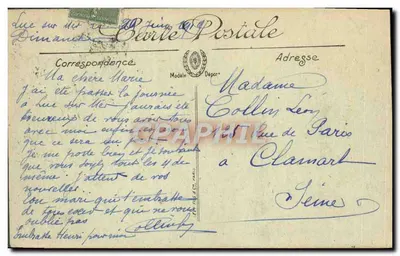 Luc sur Mer
Dimanche
Carte Postale
Correspondance
Modèle Déposé
Adresse
Ma chère Marie
J'ai été passer la journée
à Luc sur Mer j'aurais été
heureux de vous avoir tous
avec moi
que ce sera un
Je me porte bien et je souhaite
que vous soyez tous les 4 de
même. J'attend de vos
nouvelles.
Ton mari qui t'embrasse
de tout cœur et qui ne vous
oublie pas
Embrasse Henri pour moi
Collin
Madame
Collin Léon
rue de Paris
à Clamart
Seine
CPAPHIL